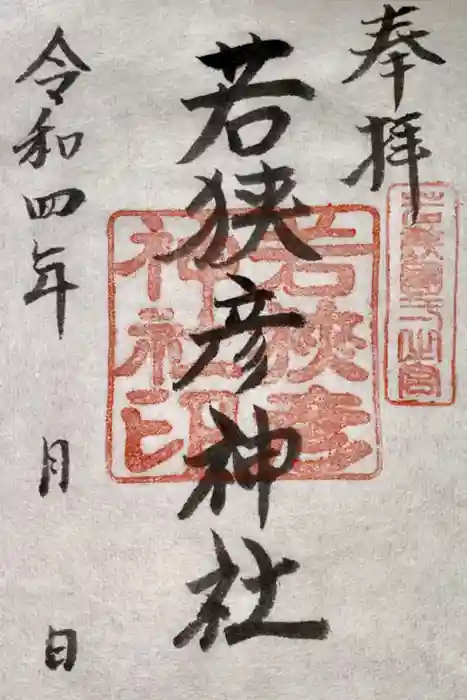 奉拝
若狭國一之宮
若狭彦神社
若狭彦
神社印
令和四年 月 日